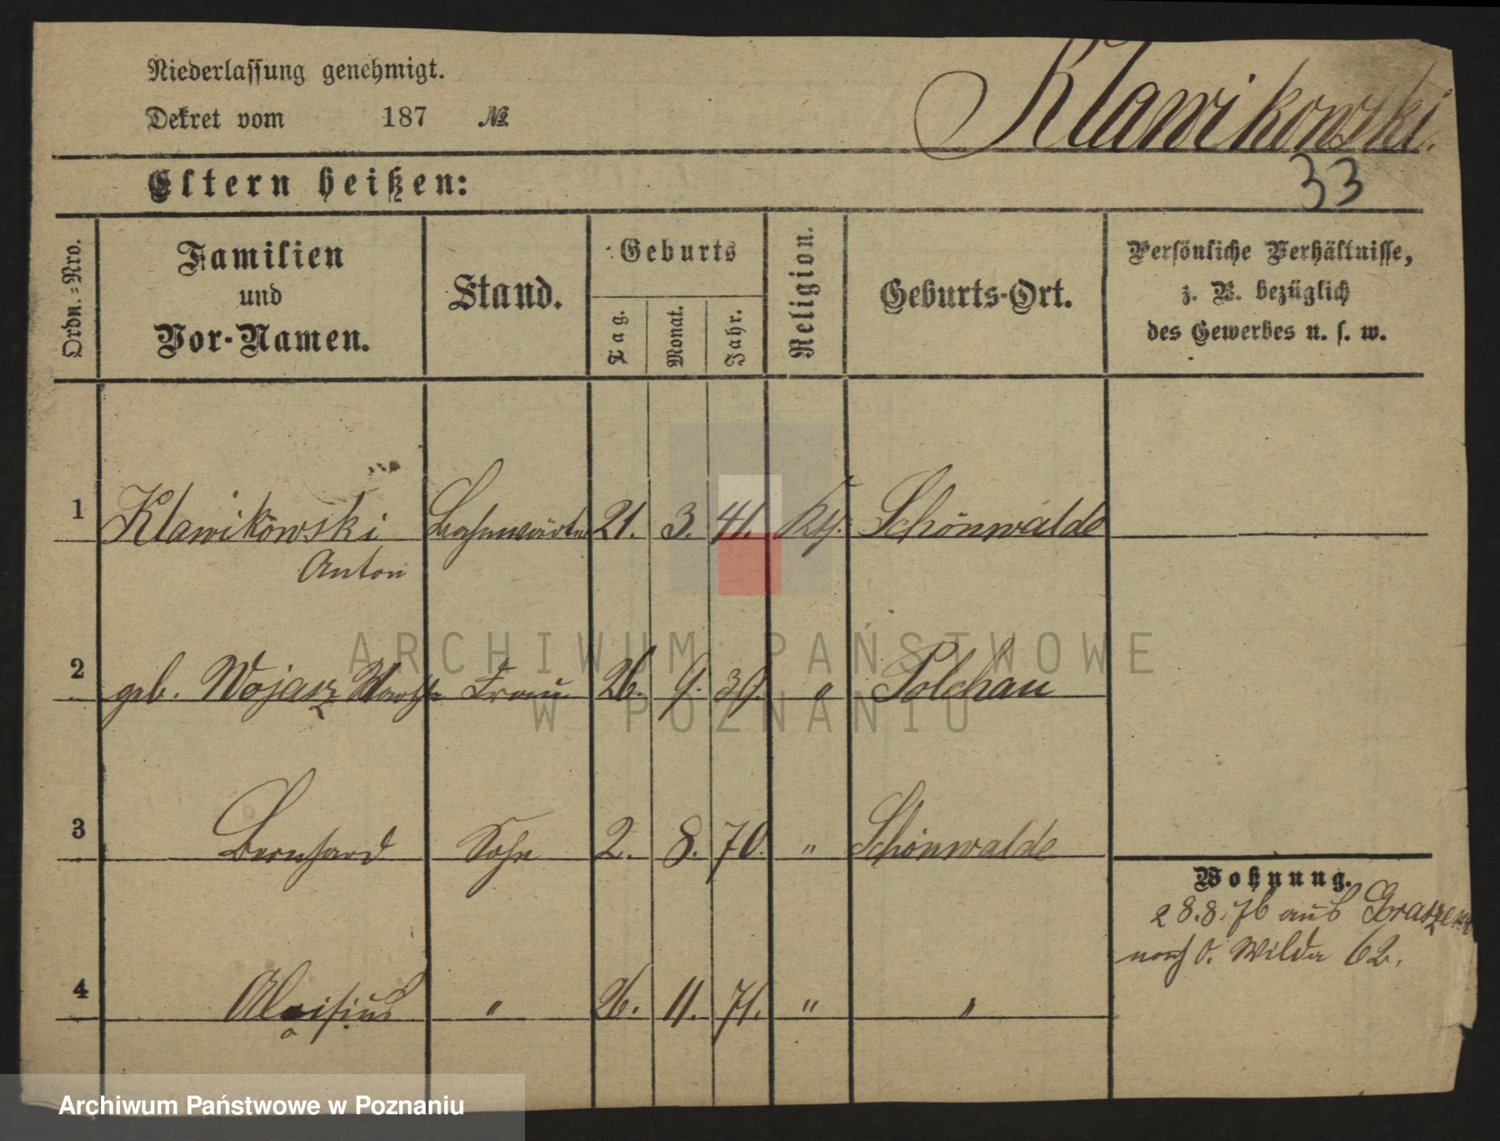 Niederlassung genehmigt.
Dekret vom 187 №
Klawikowski.
33
Eltern heißen:
Ordn.-Nro.
Familien
und
Vor-Namen.
Stand.
Geburts
Tag.
Monat.
Jahr.
Religion.
Geburts-Ort.
Persönliche Verhältnisse,
z. B. bezüglich
des Gewerbes u. s. w.
1 Klawikowski Bahnwärter 21. 3. 41. Kth. Schönwalde
Anton
2 geb. Wojarz Frau 26. 9. 39. " Polchau
3 Bernhard Sohn 2. 8. 70. " Schönwalde
Wohnung.
28.8.76 aus
nach O. Wilda 62.
4 Aloisius " 26. 11. 71. " "
ARCHIWUM PAŃSTWOWE
W POZNANIU
Archiwum Państwowe w Poznaniu